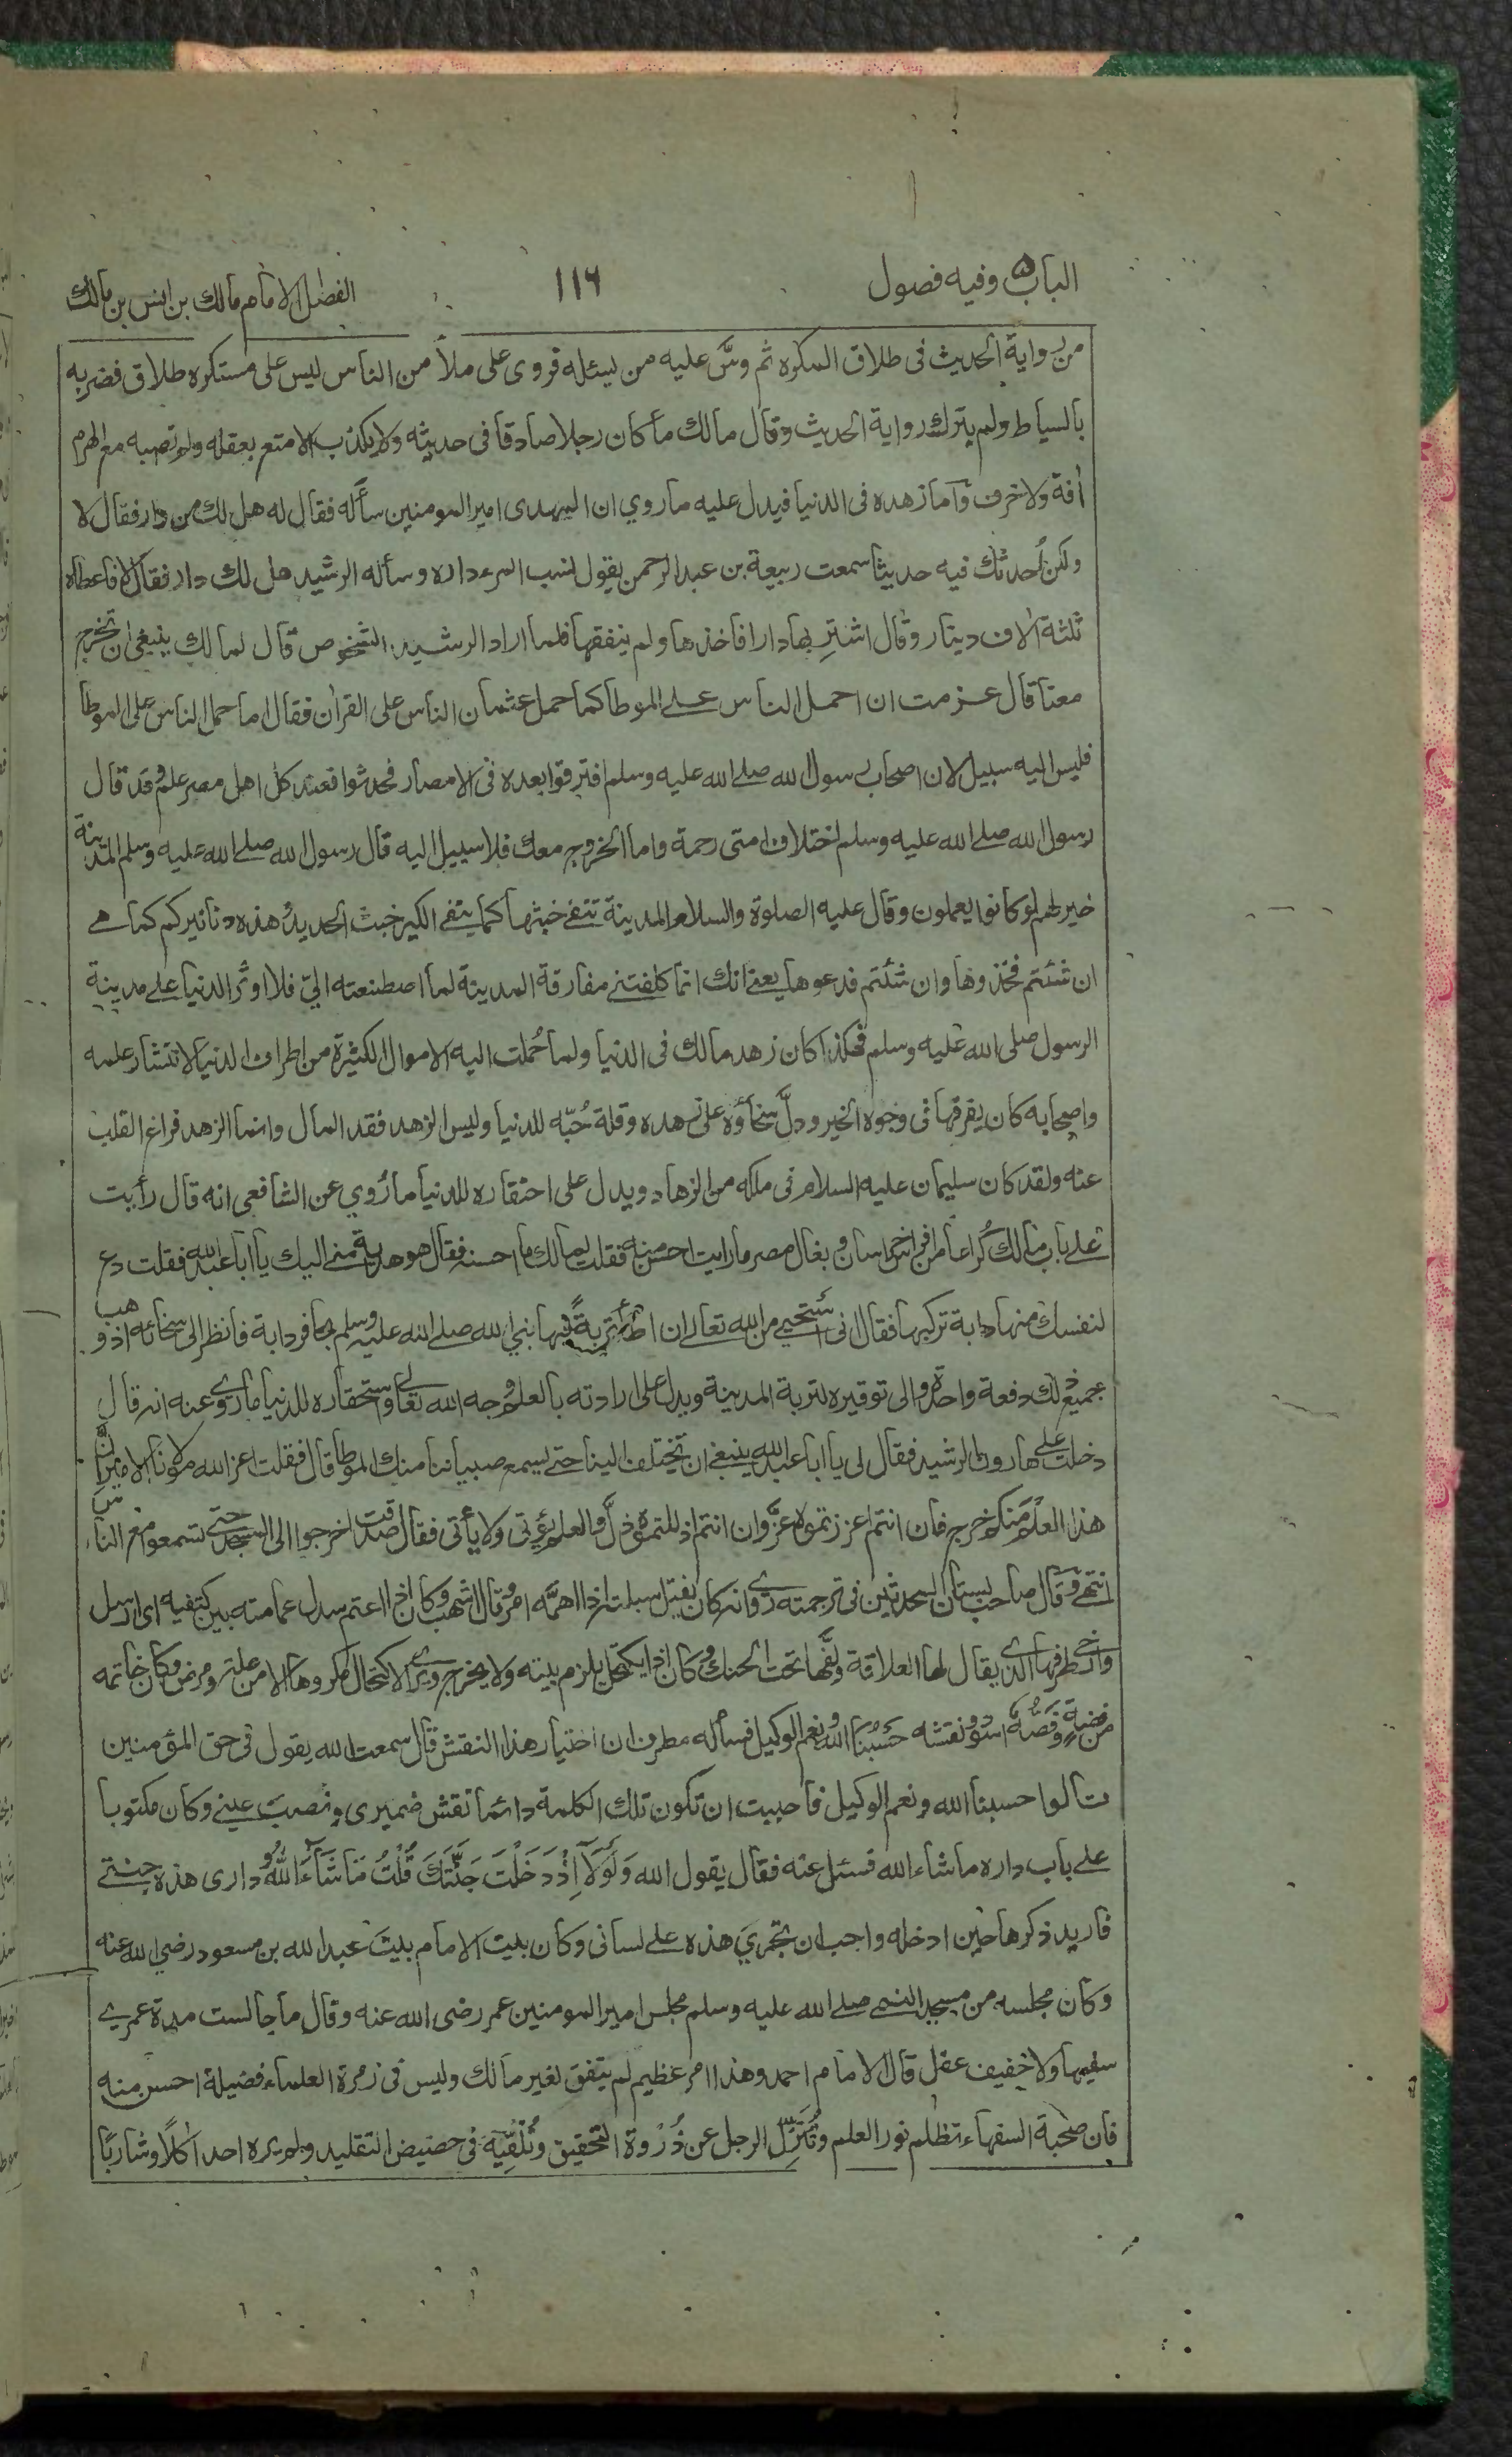 الباب ٥ وفيه فصول
١١٦
الفصل الامام مالك بن انس بن مالك
من رواية الحديث فى طلاق المكره ثم دسَّ عليه من يسئله فروى على ملأ من الناس ليس على مستكره طلاق فضربه
بالسياط ولم يترك رواية الحديث وقال مالك ما كان رجلا صادقا فى حديثه ولا يكذب الا متع بعقله ولم تصبه مع الهرم
أفة ولا خرف وأما زهده فى الدنيا فيدل عليه ما روي ان المهدى امير المومنين سأله فقال له هل لك من دار فقال لا
ولكن أُحدثك فيه حديثا سمعت ربيعة بن عبد الرحمن يقول نسب المرء داره وسأله الرشيد هل لك دار فقال لا فاعطاه
ثلثة الاف دينار وقال اشترِ بها دارا فاخذها ولم ينفقها فلما اراد الرشيد الشخوص قال لمالك ينبغى ان تخرج
معنا قال عزمت ان احمل الناس على الموطا كما حمل عثمان الناس على القران فقال اما حمل الناس على الموطا
فليس اليه سبيل لان اصحاب رسول الله صلے الله عليه وسلم افترقوا بعده فى الامصار فحدثوا فعند كل اهل مصر علم وقد قال
رسول الله صلے الله عليه وسلم اختلاف امتى رحمة واما الخروج معك فلا سبيل اليه قال رسول الله صلے الله عليه وسلم المدينة
خير لهم لو كانوا يعملون وقال عليه الصلوة والسلام المدينة تنفے خبثها كما ينفے الكير خبث الحديد وهذه دنانيركم كما هے
ان شئتم فخذوها وان شئتم فدعوها يعنے انك انما كلفتنے مفارقة المدينة لما اصطنعته اليّ فلا اوثر الدنيا علے مدينة
الرسول صلى الله عليه وسلم فهكذا كان زهد مالك فى الدنيا ولما حُملت اليه الاموال الكثيرة من اطراف الدنيا لانتشار علمه
واصحابه كان يفرقها فى وجوه الخير ودلَّ سخاؤه على زهده وقلة حُبّه للدنيا وليس الزهد فقد المال وانما الزهد فراغ القلب
عنه ولقد كان سليمان عليه السلام فى ملكه من الزهاد ويدل على احتقاره للدنيا ما رُوي عن الشافعى انه قال رأيت
على باب مالك كُراعا من افراس خراسان وبغال مصر ما رايت احسن منه فقلت لمالك ما احسنه فقال هو هدية منے اليك يا ابا عبد الله فقلت دع
لنفسك منها دابة تركبها فقال انى أستحيي من الله تعالى ان اطأ تربةً فيها نبي الله صلے الله عليه وسلم بحافر دابة فانظر الى سخائه اذ وهب
جميع ذلك دفعة واحدة والى توقيره لتربة المدينة ويدل على ارادته بالعلم وجه الله تعالے واستحقاره للدنيا ما روے عنه انه قال
دخلت على هارون الرشيد فقال لى يا ابا عبد الله ينبغے ان تختلف الينا حتے يسمع صبياننا منك الموطا قال فقلت اعز الله مولانا الامير ان
هذا العلم منكم خرج فان انتم اعززتموه عزَّ وان انتم اذللتموه ذلَّ والعلم يؤتى ولا يأتى فقال صدقت اخرجوا الى المسجد حتى تسمعوا مع الناس
انتهے وقال صاحب بستان المحدثين فى ترجمته روے انه كان يفتل سبلته اذا اهمَّه امر وقال اشهب وكان اذا اعتم سدل عمامته بين كتفيه اى ارسل
وارخى طرفها الذى يقال لها العلاقة ولفَّها تحت الحنك وكان اذا يكتحل يلزم بيته ولا يخرج ويرى الاكتحال مكروها الا من علة ومرض وكان خاتمه
من فضة وفَصُّه اسود ونقشه حَسْبُنَا الله ونعم الوكيل فسأله مطرف ان اختيار هذا النقش قال سمعت الله يقول فى حق المؤمنين
قالوا حسبنا الله ونعم الوكيل فأحببت ان تكون تلك الكلمة دائما نقش ضميرى ونصب عينے وكان مكتوبا
علے باب داره ما شاء الله فسئل عنه فقال يقول الله وَلَوْلَآ اِذْ دَخَلْتَ جَنَّتَكَ قُلْتَ مَا شَآءَ اللّٰهُ ودارى هذه جنتے
فاريد ذكرها حين ادخله واحب ان تجرىَ هذه علے لسانى وكان بيت الامام بيت عبد الله بن مسعود رضي الله عنه
وكان مجلسه من مسجد النبے صلے الله عليه وسلم مجلس امير المومنين عمر رضى الله عنه وقال ما جالست مدة عمرے
سفيها ولا خفيف عقل قال الامام احمد وهذا امر عظيم لم يتفق لغير مالك وليس فى زمرة العلماء فضيلة احسن منه
فان صحبة السفهاء تظلم نور العلم وتُنَزِّل الرجل عن ذُرْوة التحقيق وتُلْقِيَه فى حضيض التقليد ولم يره احد اٰكلاً وشاربًا